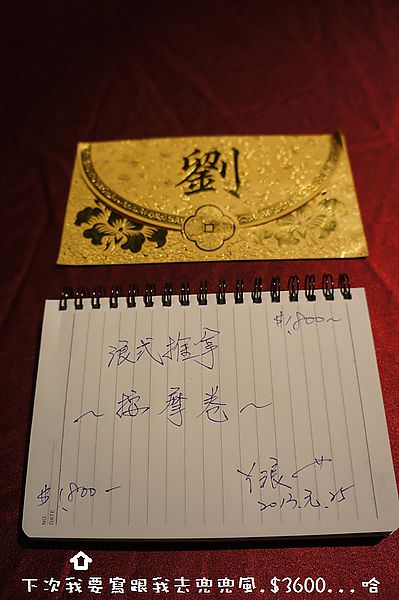 劉
$1,800~
浪式推拿
~按摩卷~
$1,800-
2013.元.25
NO.
DATE
下次我要寫跟我去兜兜風.$3600...哈